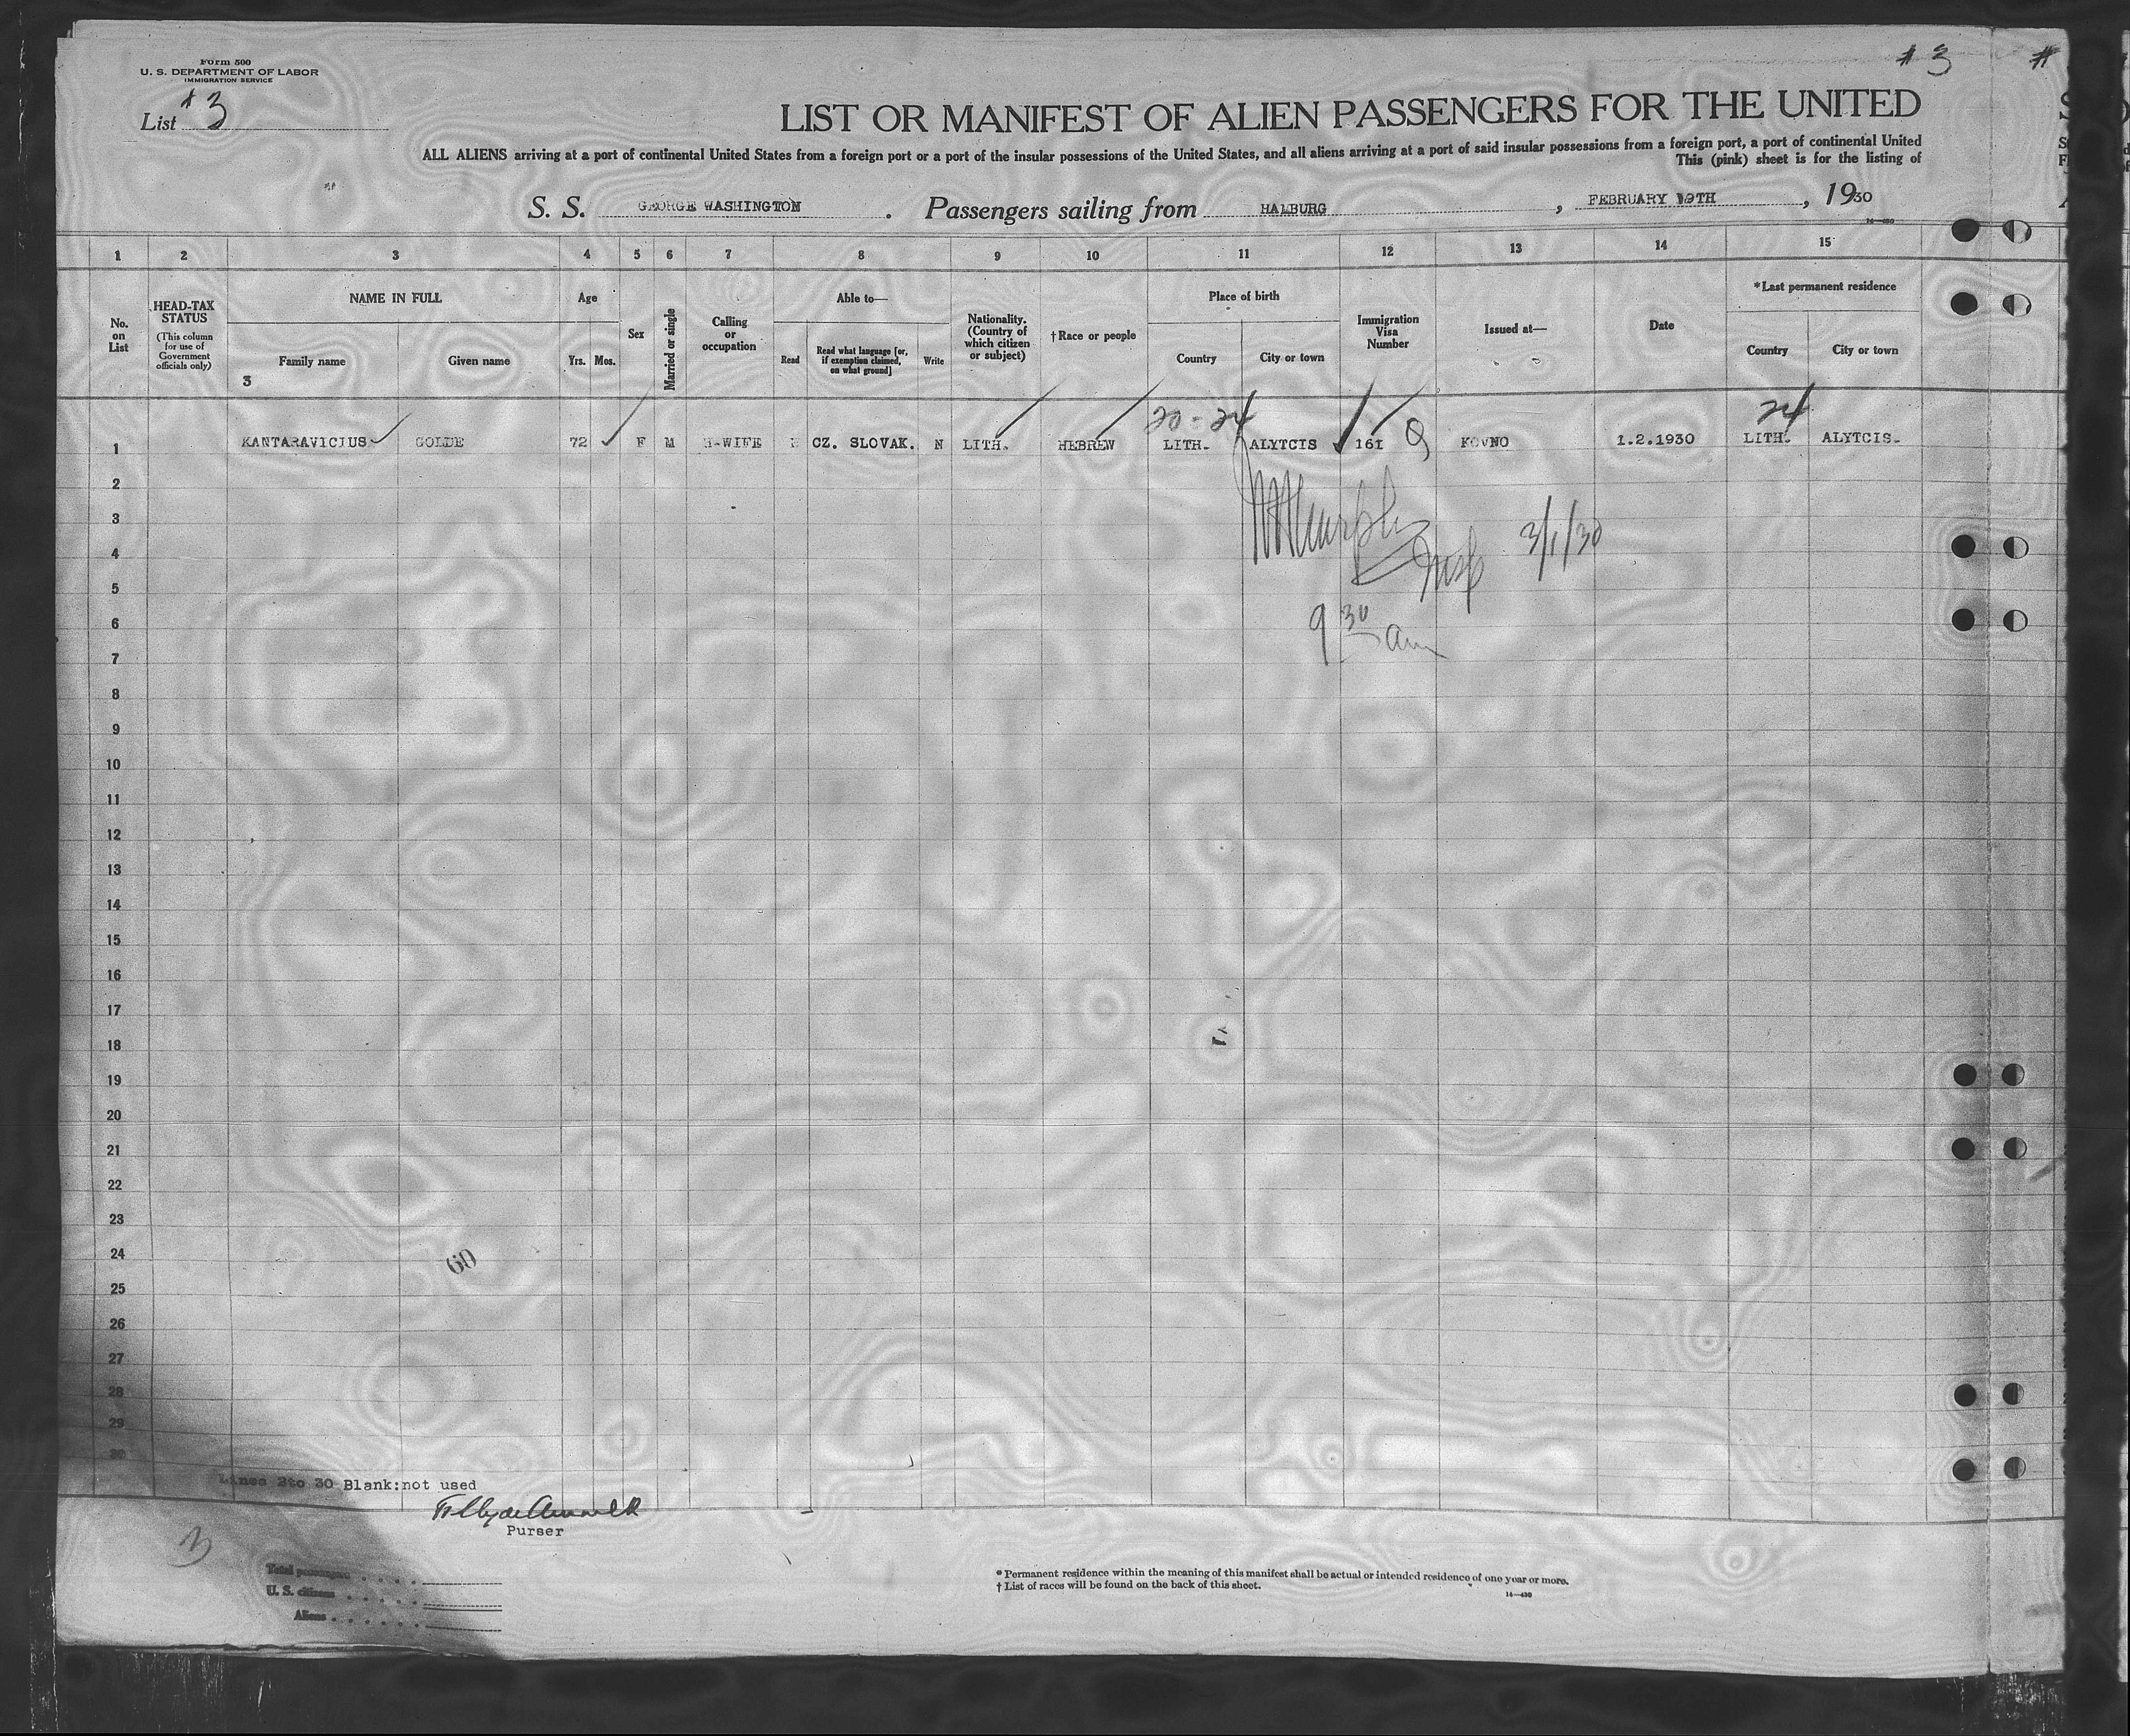 Form 500
U. S. DEPARTMENT OF LABOR
IMMIGRATION SERVICE
List # 3
# 3
#
LIST OR MANIFEST OF ALIEN PASSENGERS FOR THE UNITED
ALL ALIENS arriving at a port of continental United States from a foreign port or a port of the insular possessions of the United States, and all aliens arriving at a port of said insular possessions from a foreign port, a port of continental United
This (pink) sheet is for the listing of
S. S. GEORGE WASHINGTON . Passengers sailing from HALBURG , FEBRUARY 19TH , 1930
14—430
1 2 3 4 5 6 7 8 9 10 11 12 13 14 15
No. on List
HEAD-TAX STATUS
(This column for use of Government officials only)
NAME IN FULL
Family name Given name
3
Age
Yrs. Mos.
Sex
Married or single
Calling or occupation
Able to—
Read
Read what language [or, if exemption claimed, on what ground]
Write
Nationality. (Country of which citizen or subject)
†Race or people
Place of birth
Country City or town
Immigration Visa Number
Issued at—
Date
*Last permanent residence
Country City or town
20-24 24
1 KANTARAVICIUS GOLDE 72 F M H-WIFE CZ. SLOVAK. N LITH. HEBREW LITH. ALYTCIS 161 KOVNO 1.2.1930 LITH. ALYTCIS.
2
3 Murphy
4 Insp 3/1/30
5
6 9 30 am
7
8
9
10
11
12
13
14
15
16
17
18
19
20
21
22
23
24
60
25
26
27
28
29
30
Lines 2to 30 Blank:not used
Purser
3
Total passengers
U. S. citizens
Aliens
* Permanent residence within the meaning of this manifest shall be actual or intended residence of one year or more.
† List of races will be found on the back of this sheet.
14—430